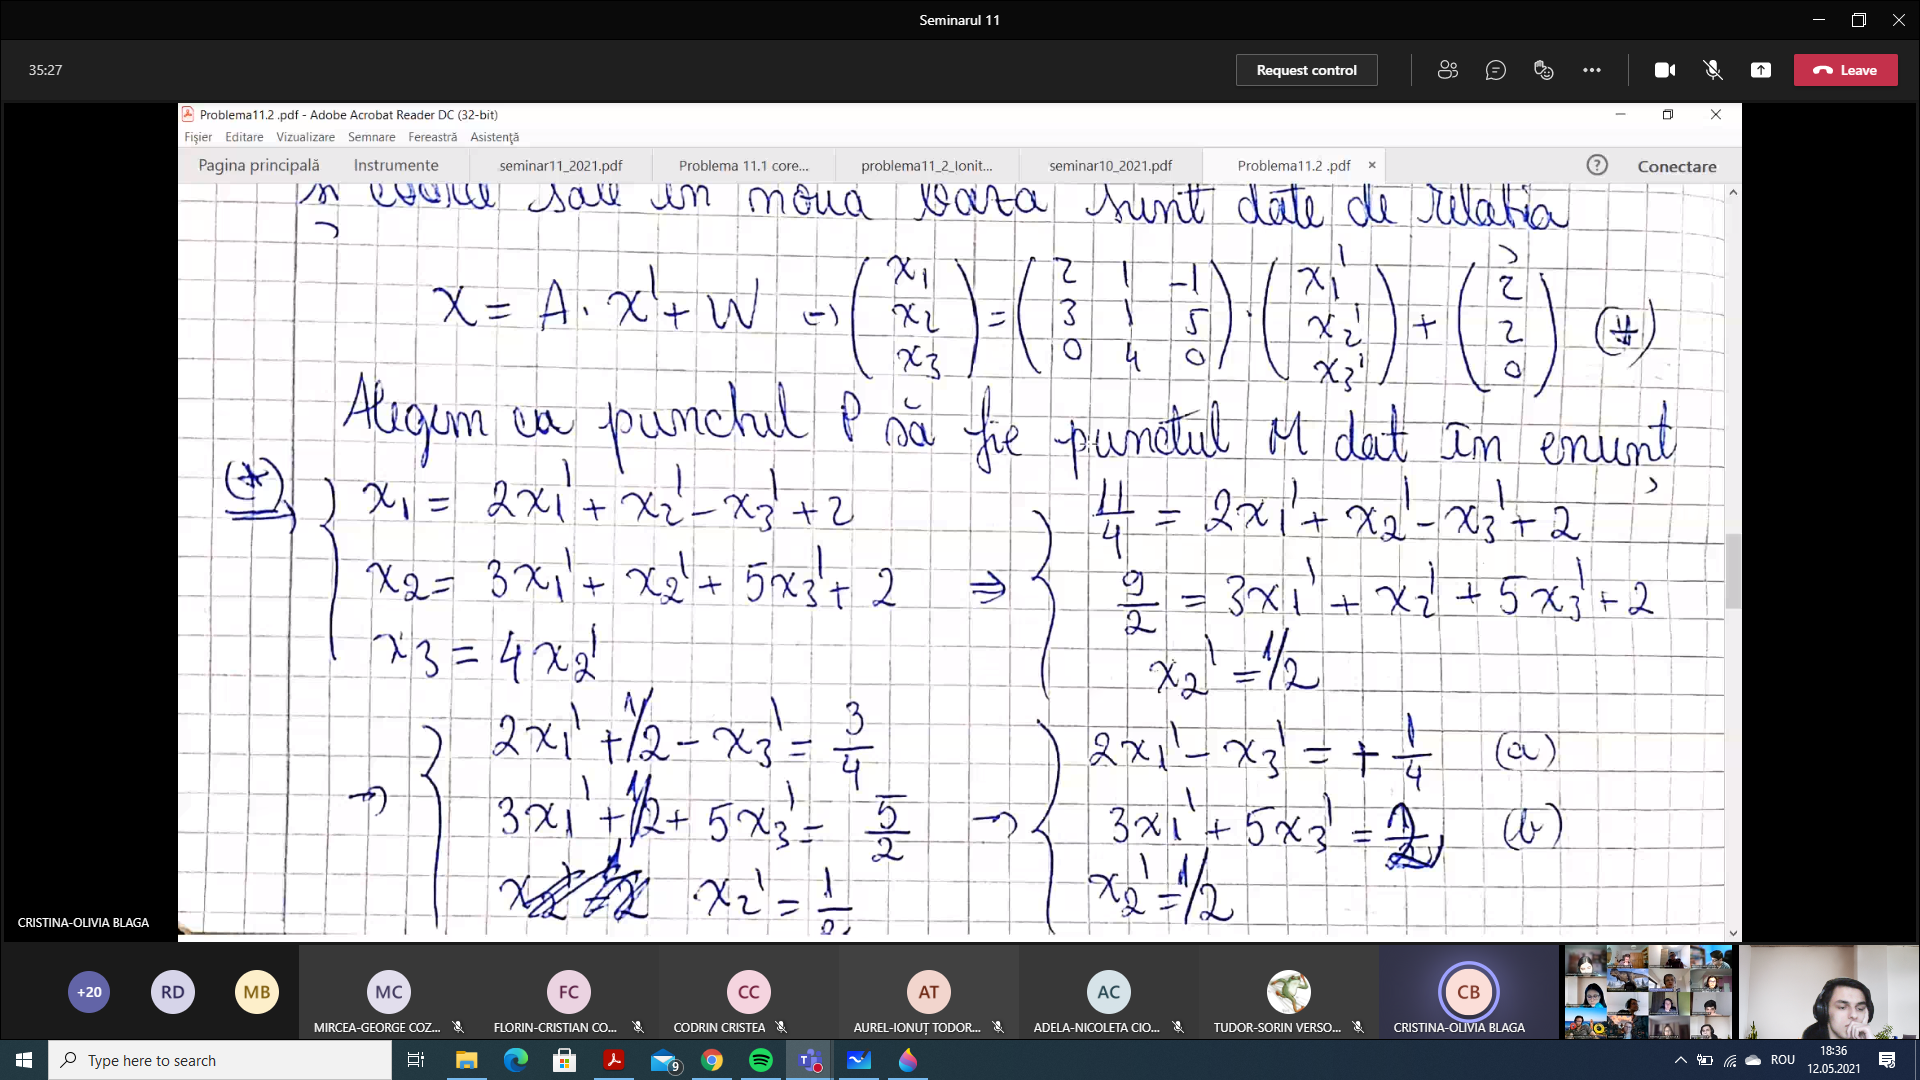 Seminarul 11
35:27
Request control
Leave
Problema11.2 .pdf - Adobe Acrobat Reader DC (32-bit)
Fișier Editare Vizualizare Semnare Fereastră Asistență
Pagina principală Instrumente seminar11_2021.pdf Problema 11.1 core... problema11_2_Ionit... seminar10_2021.pdf Problema11.2 .pdf × Conectare
sale în noua baza sunt date de relatia
x = A · x' + W → (x1 x2 x3) = (2 1 -1 3 1 5 0 4 0) · (x1' x2' x3') + (2 2 0) (*)
Alegem ca punctul P să fie punctul M dat în enunț
(*)
x1 = 2x1' + x2' - x3' + 2
x2 = 3x1' + x2' + 5x3' + 2
x3 = 4x2'
⇒
11/4 = 2x1' + x2' - x3' + 2
9/2 = 3x1' + x2' + 5x3' + 2
x2' = 1/2
→
2x1' + 1/2 - x3' = 3/4
3x1' + 1/2 + 5x3' = 5/2
x2' = 1/2
→
2x1' - x3' = + 1/4 (a)
3x1' + 5x3' = 2 (b)
x2' = 1/2
CRISTINA-OLIVIA BLAGA
+20
RD
MB
MC
MIRCEA-GEORGE COZ...
FC
FLORIN-CRISTIAN CO...
CC
CODRIN CRISTEA
AT
AUREL-IONUȚ TODOR...
AC
ADELA-NICOLETA CIO...
TUDOR-SORIN VERSO...
CB
CRISTINA-OLIVIA BLAGA
Type here to search
9
ROU
18:36
12.05.2021